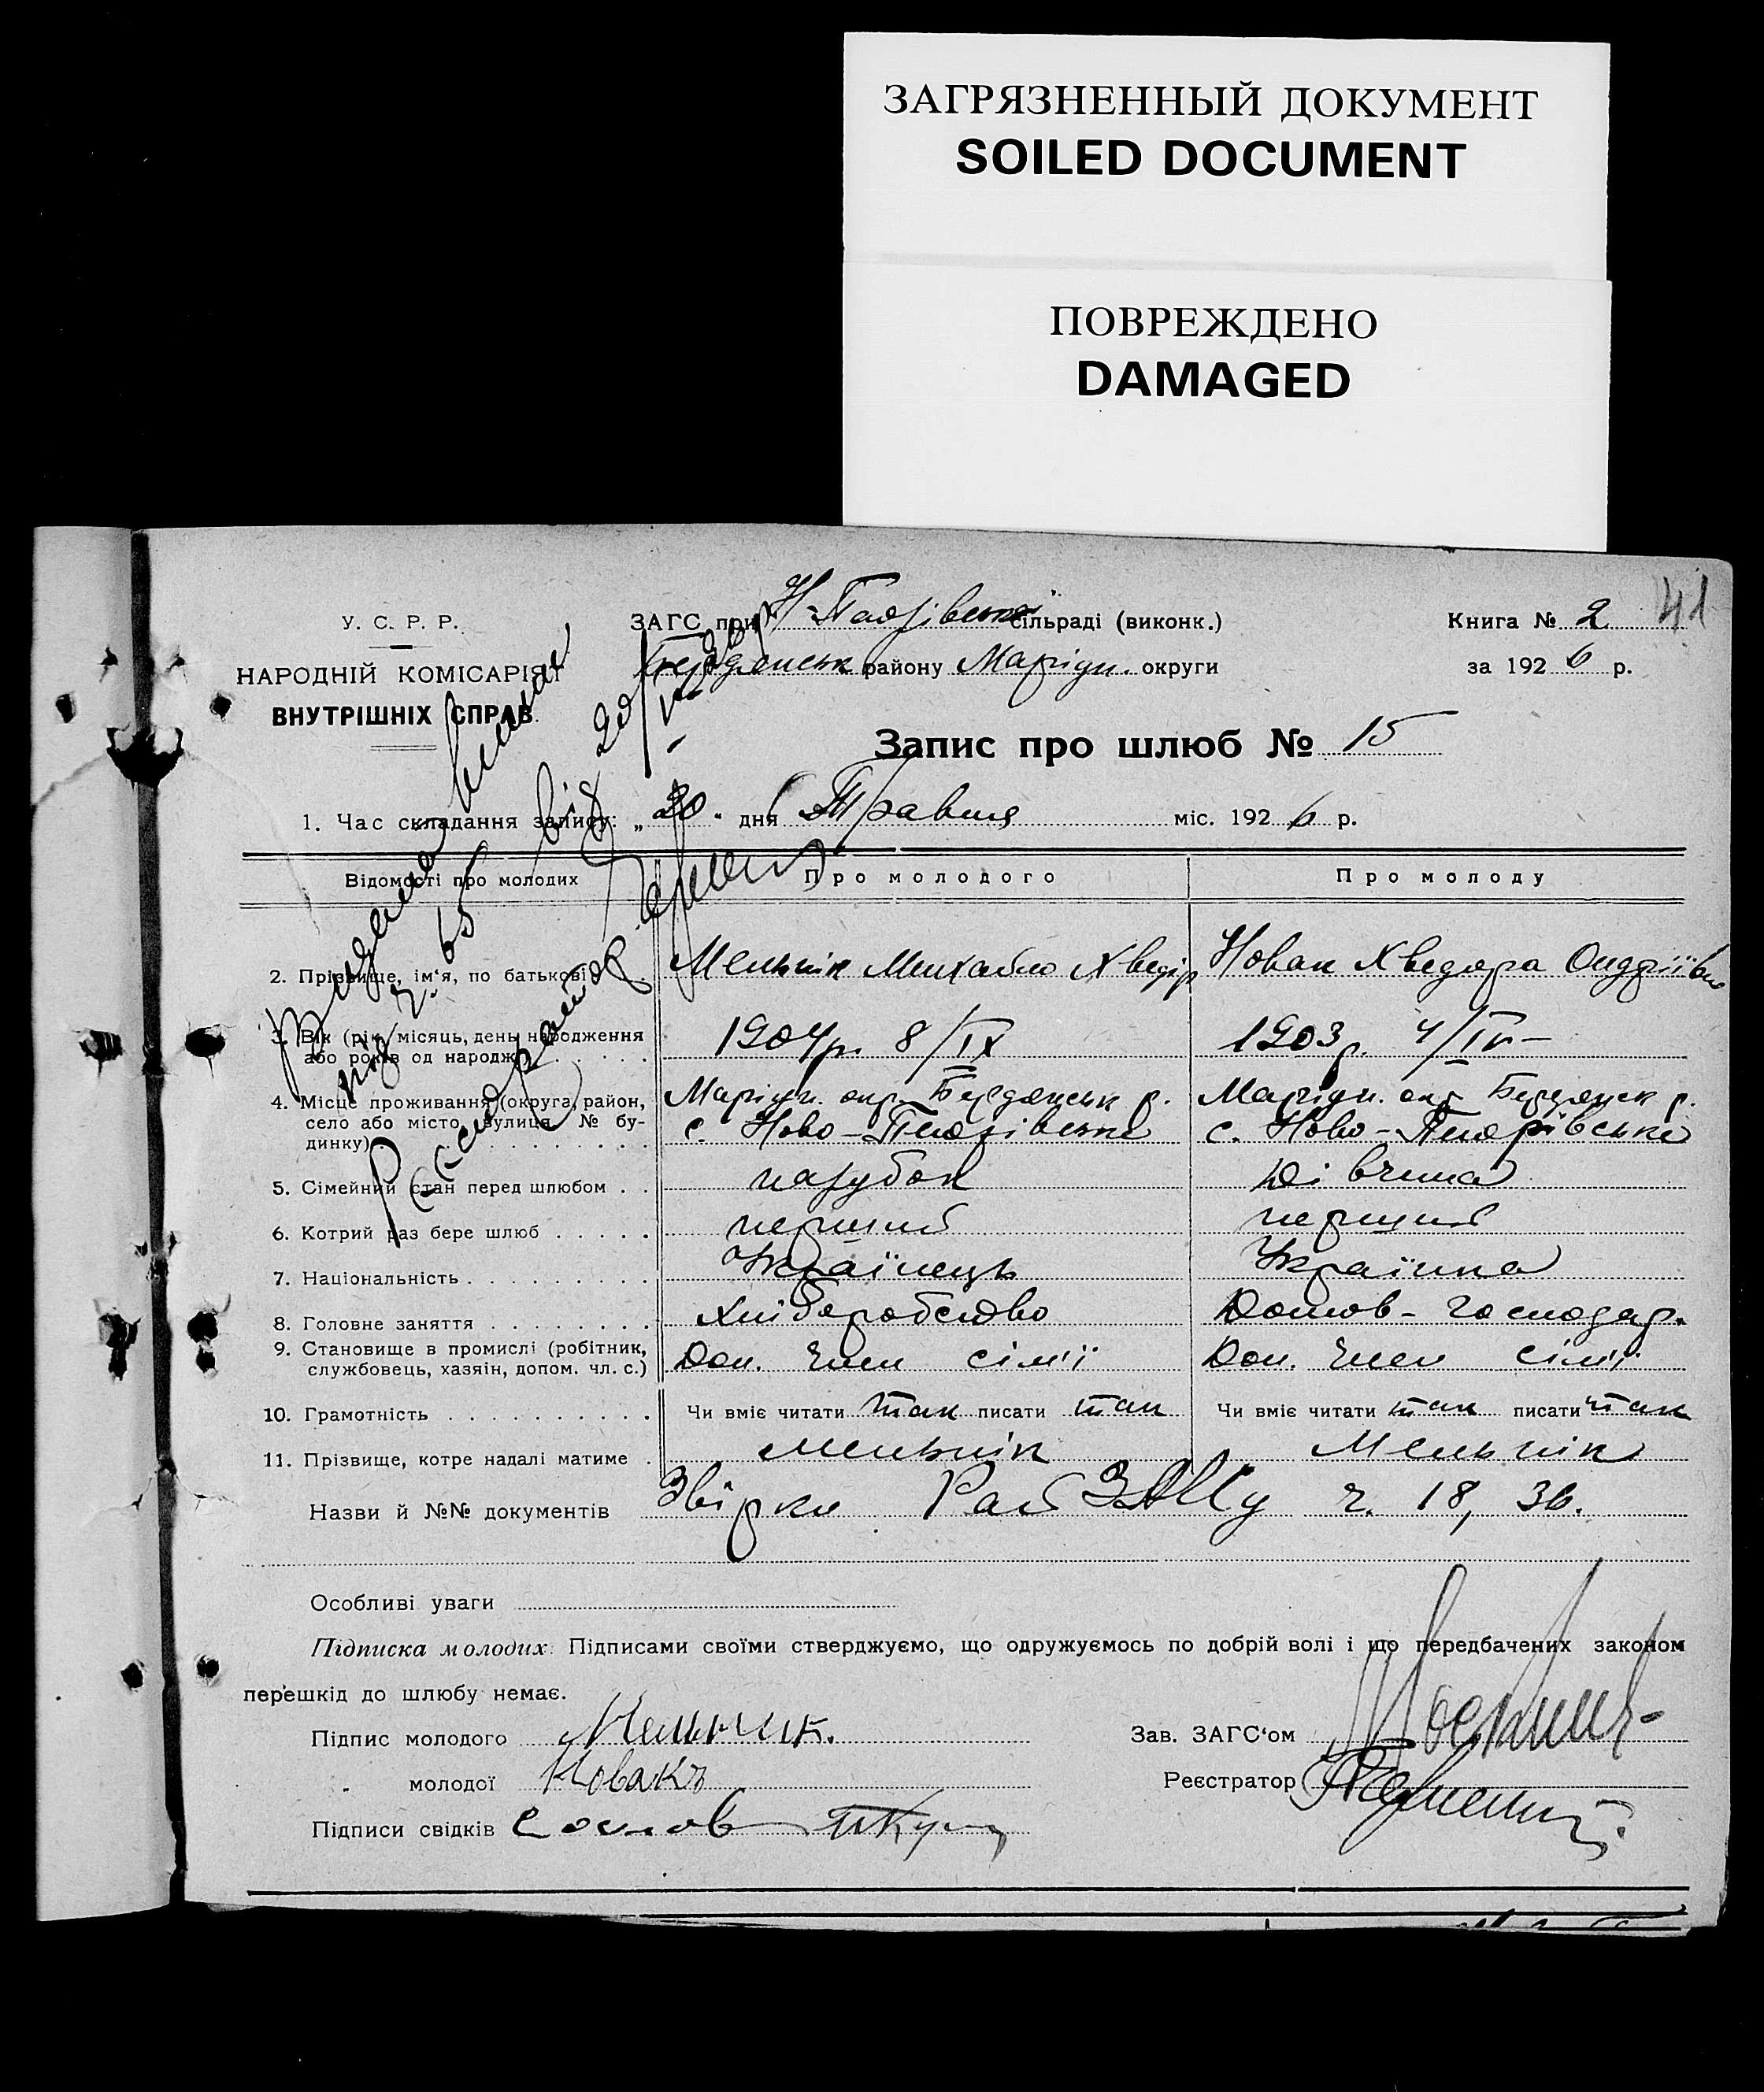 ЗАГРЯЗНЕННЫЙ ДОКУМЕНТ
SOILED DOCUMENT
ПОВРЕЖДЕНО
DAMAGED
41
У. С. Р. Р.
НАРОДНІЙ КОМІСАРІЯТ
ВНУТРІШНІХ СПРАВ.
ЗАГС при Н сільраді (виконк.)
Бердянськ району Маріуп. округи
Книга № 2
за 1926 р.
Запис про шлюб № 15
1. Час складання запису: „20“ дня Травня міс. 1926 р.
Відомості про молодих Про молодого Про молоду
2. Прізвище, ім‘я, по батькові Мельнік Михайло Хведір Новак Хведора Ондріївн
3. Вік (рік, місяць, день народження або років од народж.) 1904р. 8/IX 1903р. 4/IV-
4. Місце проживання (округа, район, село або місто, вулиця, № будинку) Маріуп. окр. Бердянськ р. Маріуп. окр Бердянск р.
с. Ново- с. Ново-
5. Сімейний стан перед шлюбом парубок Дівчина
6. Котрий раз бере шлюб перший перший
7. Національність Українець Українка
8. Головне заняття Хліборобство Домов-господар.
9. Становище в промислі (робітник, службовець, хазяін, допом. чл. с.) Доп. член сімʼї Доп. член сімʼї
10. Грамотність Чи вміє читати так писати так Чи вміє читати так писати так
11. Прізвище, котре надалі матиме Мельнік Мельнік
Назви й №№ документів Звірки Рай ЗАГСу ч. 18, 36.
Особливі уваги
Підписка молодих. Підписами своїми стверджуємо, що одружуємось по добрій волі і що передбачених законом
перешкід до шлюбу немає.
Підпис молодого Мельник.
„ молодої Новакъ
Підписи свідків
Зав. ЗАГС‘ом
Реєстратор
Видано виписк
під ч. 65 від 20/V-26р.
Реєстратор